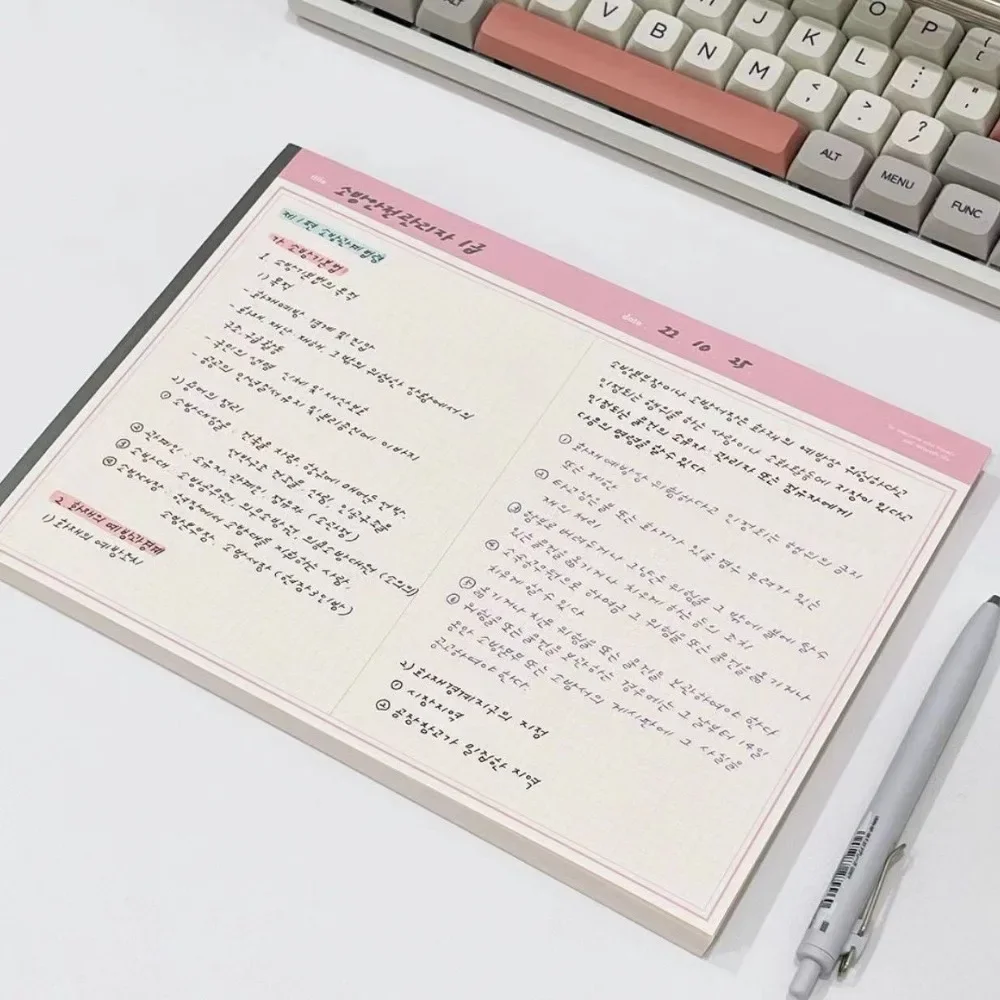 ALT
V
B
N
M
J
K
L
O
P
< ,
> .
? /
: ;
" '
{ [
ALT
MENU
FUNC
title
소방안전관리자 1급
date
22 10 25
제 1편 소방관계법령
가. 소방기본법
1. 소방기본법의 목적
1) 목적
- 화재예방 경계 및 진압
- 화재, 재난·재해, 그 밖의 위험한 상황에서의
구조·구급활동
- 국민의 생명 신체 및 재산보호
- 공공의 안녕질서유지 및 복리증진에 이바지
2) 용어의 정리
① 소방대상물 : 건축물, 차량, 항구에 매어둔 선박
선박건조구조물, 산림, 인공구조물
② 관계인 : 소유자, 관리인, 점유자 (소관점)
③ 소방대 : 소방공무원, 의무소방원, 의용소방대원 (소의의)
④ 소방대장 : 현장에서 소방대를 지휘하는 사람
소방본부장, 소방서장 (현장3인방)
2. 화재의 예방과 경계
1) 화재의 예방조치
소방본부장이나 소방서장은 화재의 예방상 위험하다고
인정되는 행위를 하는 사람이나 소화활동에 지장이 있다고
인정되는 물건의 소유자·관리자 또는 점유자에게
다음의 명령을 할 수 있다
① 화재예방상 위험하다고 인정되는 행위의 금지
또는 제한
② 타고남은 불 또는 화기가 있을 경우 우려가 있는
재의 처리
③ 함부로 버려두거나 그냥둔 위험물 그 밖에 불에 탈 수
있는 물건을 옮기거나 치우게 하는 등의 조치
④ 소속공무원으로 하여금 그 위험물 또는 물건을 옮기거나
치우게 할 수 있다
⑤ 옮기거나 치운 위험물 또는 물건을 보관하여야 한다
⑥ 위험물 또는 물건을 보관하는 경우에는 그 날부터 14일
동안 소방본부 또는 소방서의 게시판에 그 사실을
공고하여야 한다.
2) 화재경계지구의 지정
① 시장지역
② 공장·창고가 밀집한 지역